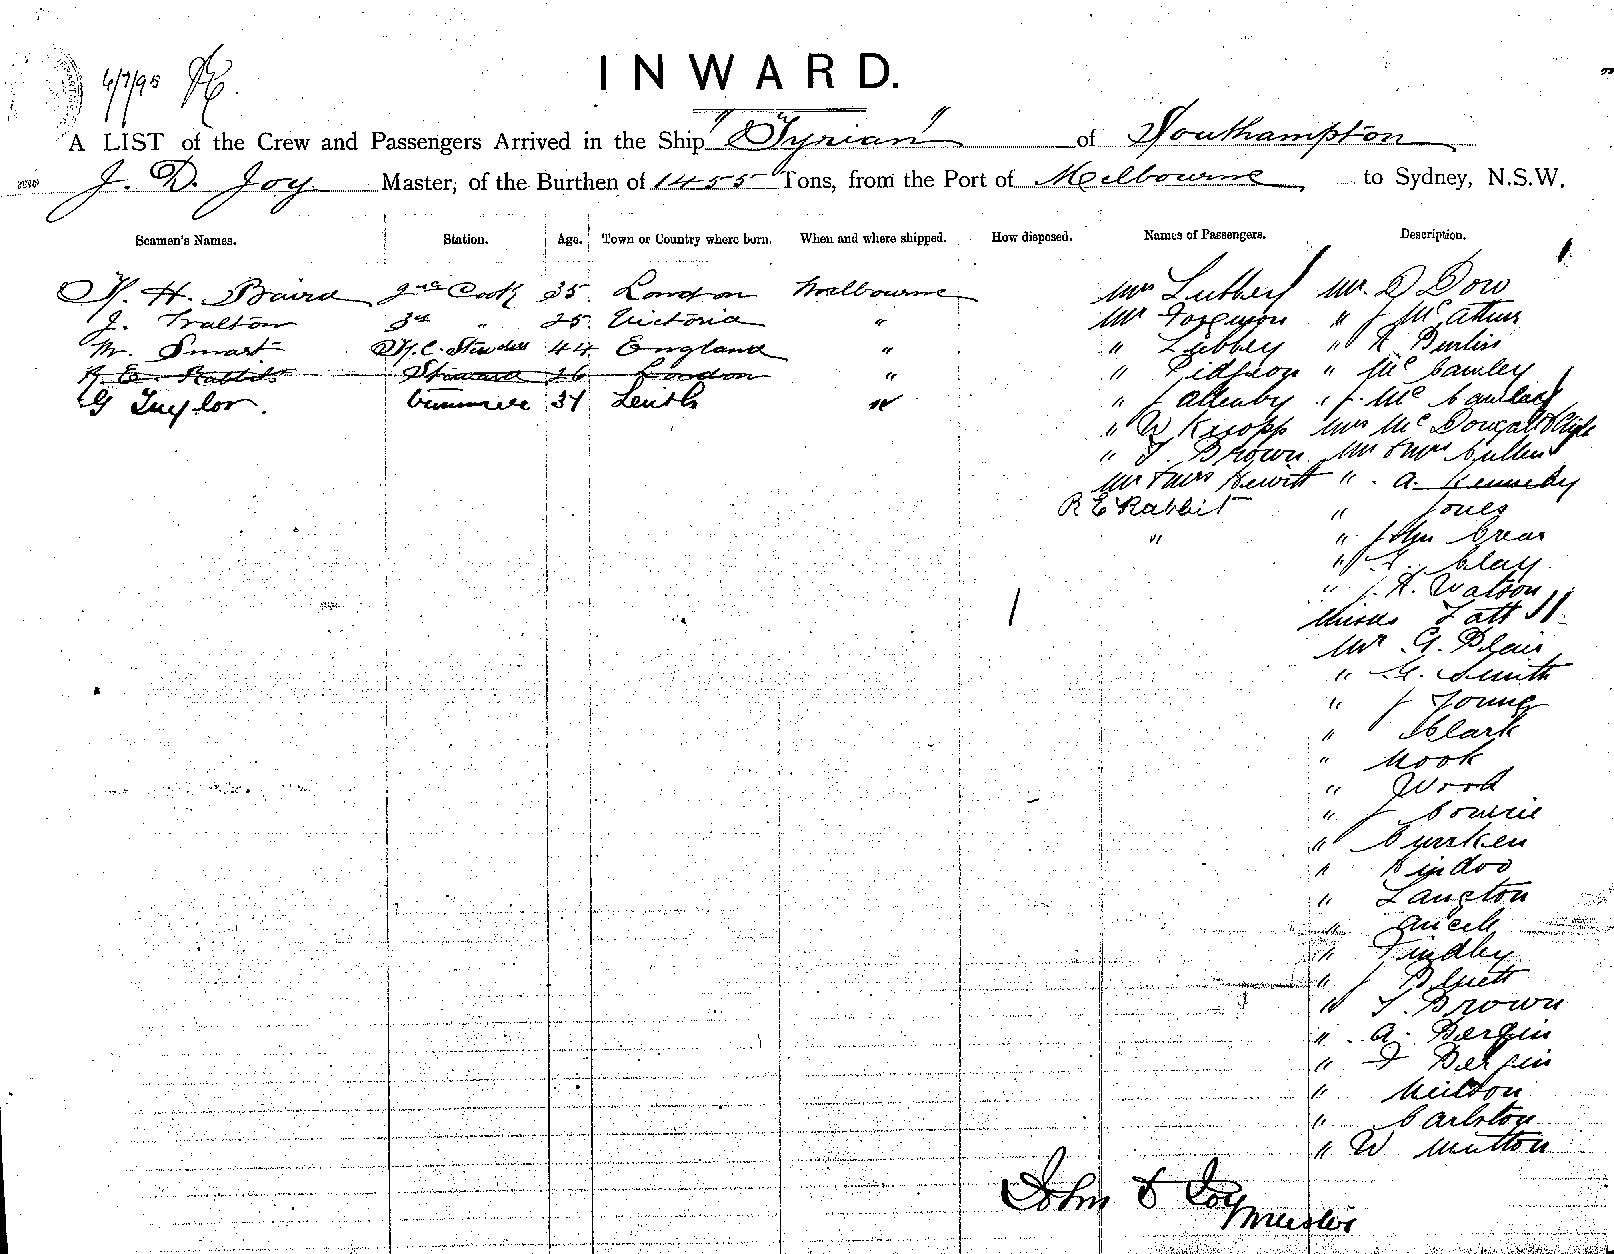 6/7/95
INWARD.
A LIST of the Crew and Passengers Arrived in the Ship "Tyrian" of Southampton
J. D. Joy Master, of the Burthen of 1455 Tons, from the Port of Melbourne to Sydney, N.S.W.
Seamen's Names. Station. Age. Town or Country where born. When and where shipped. How disposed. Names of Passengers. Description.
H. Baird 2nd Cook 35 London Melbourne Mrs Mr D Dow
J. 3rd " 25 Victoria " Mr " J McArthur
W. Smart 44 England " " Libbey "
R. E. Rabbits Steward 26 London " " Pidgeon " McCamley
G Taylor. 31 Leith " " J Allenby " J. McCamley
" W Knopp Mrs McDougall &
" T. Brown Mr & Mrs Cullen
Mr & Mrs Hewitt " A. Kennedy
R E Rabbit " Jones
" " John Crear
" Clay
" J. H. Watson
Misses Tatt
Mr G. Blair
" G. Smith
" J Young
" Clark
" Hook
" Wood
" J Cowrie
"
"
" Langton
"
" Findley
" J Bluett
" T. Brown
" A. Bergin
" Bergin
"
" Carlston
" W Mutton
John D Joy
Master